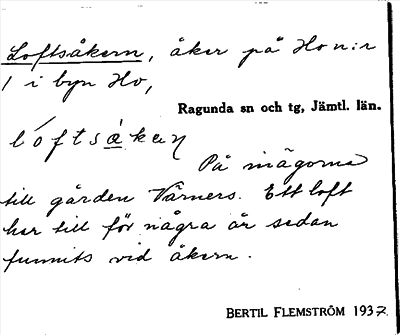 Loftsåkern, åker på Ho n:r
1 i byn Ho,
Ragunda sn och tg, Jämtl. län.
På mägorna
till gården Värners. Ett loft
har till för några år sedan
funnits vid åkern.
BERTIL FLEMSTRÖM 1937